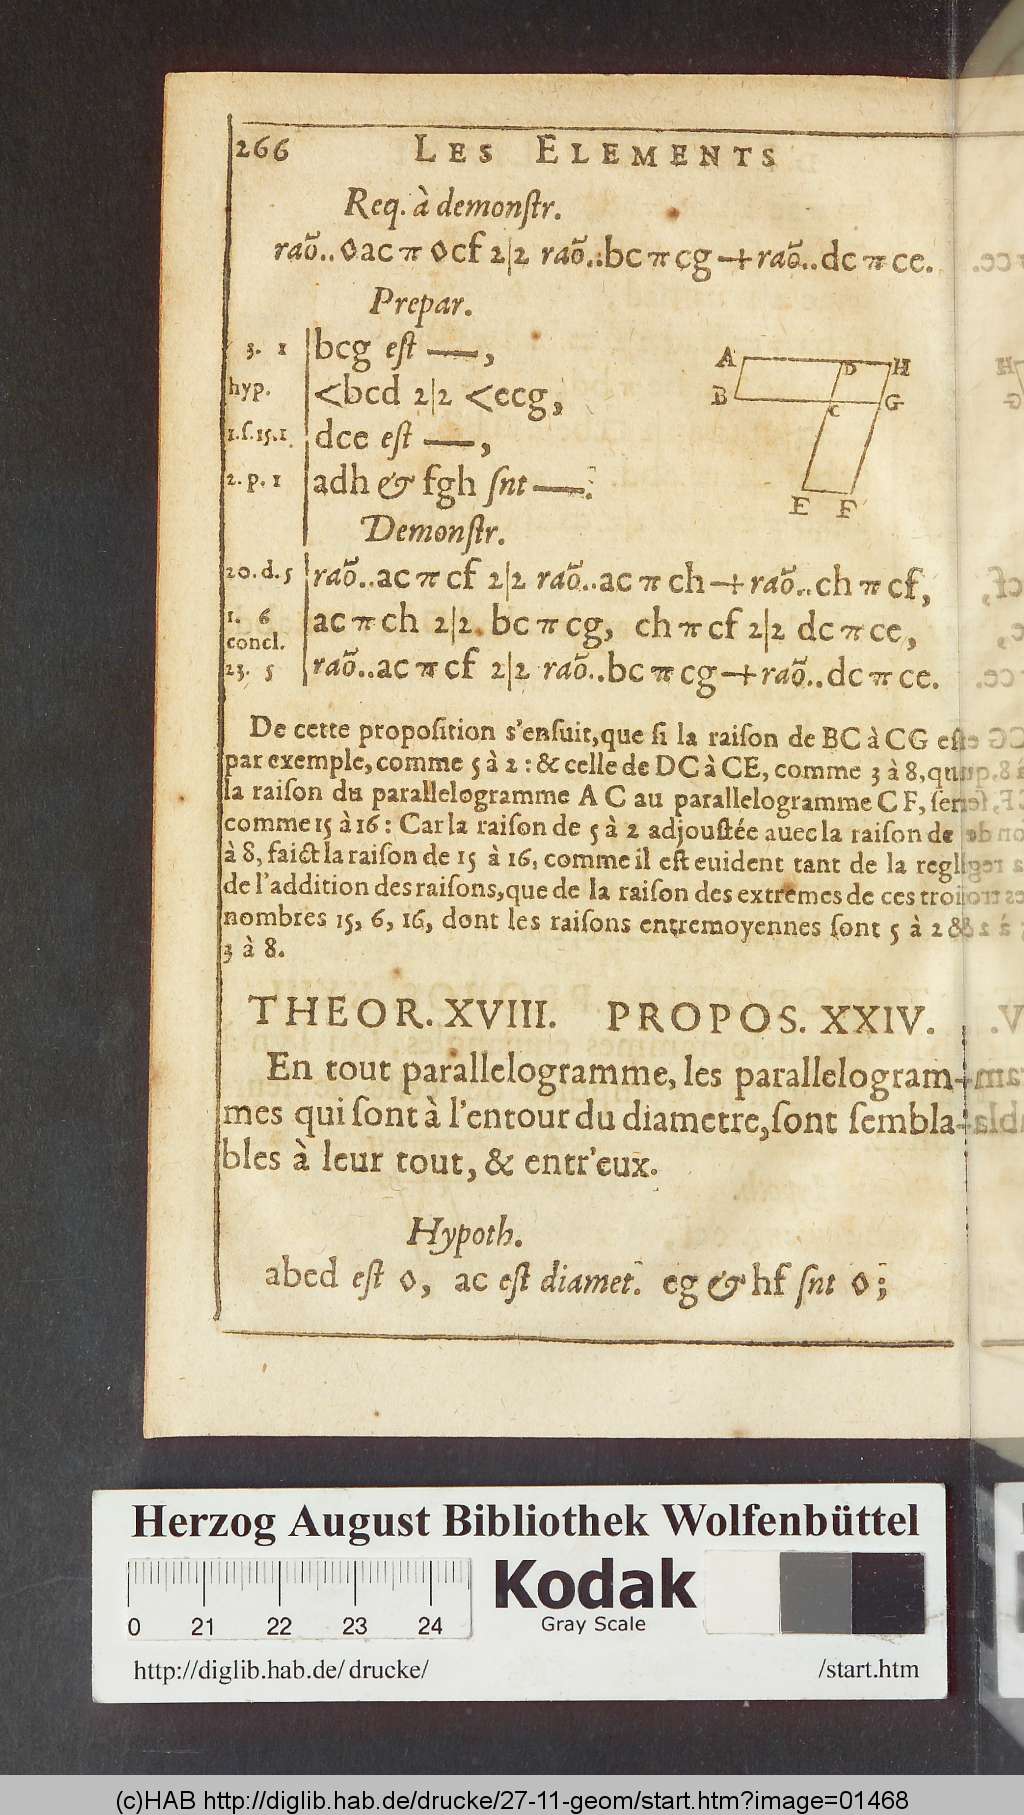 266 LES ELEMENTS
Req. à demonſtr.
raõ..◊ac π ◊cf 2|2 raõ..bc π cg + raõ..dc π ce.
Prepar.
3. 1 bcg eſt —,
hyp. <bcd 2|2 <ecg,
1.ſ.15.1 dce eſt —,
2. p. 1 adh & fgh ſnt —.
A D H
B C G
E F
Demonſtr.
20. d. 5 raõ..ac π cf 2|2 raõ..ac π ch + raõ..ch π cf,
1. 6 ac π ch 2|2 bc π cg, ch π cf 2|2 dc π ce,
concl.
23. 5 raõ..ac π cf 2|2 raõ..bc π cg + raõ..dc π ce.
De cette propoſition s'enſuit, que ſi la raiſon de BC à CG eſt
par exemple, comme 5 à 2 : & celle de DC à CE, comme 3 à 8,
la raiſon du parallelogramme A C au parallelogramme C F,
comme 15 à 16 : Car la raiſon de 5 à 2 adjouſtée auec la raiſon de
à 8, faict la raiſon de 15 à 16, comme il eſt euident tant de la
de l'addition des raiſons, que de la raiſon des extrémes de ces
nombres 15, 6, 16, dont les raiſons entremoyennes ſont 5 à 2 &
3 à 8.
THEOR. XVIII. PROPOS. XXIV.
En tout parallelogramme, les parallelogram-
mes qui ſont à l'entour du diametre, ſont ſembla-
bles à leur tout, & entr'eux.
Hypoth.
abcd eſt ◊, ac eſt diamet. eg & hf ſnt ◊;
Herzog August Bibliothek Wolfenbüttel
0 21 22 23 24
Kodak
Gray Scale
http://diglib.hab.de/drucke/ /start.htm
(c)HAB http://diglib.hab.de/drucke/27-11-geom/start.htm?image=01468